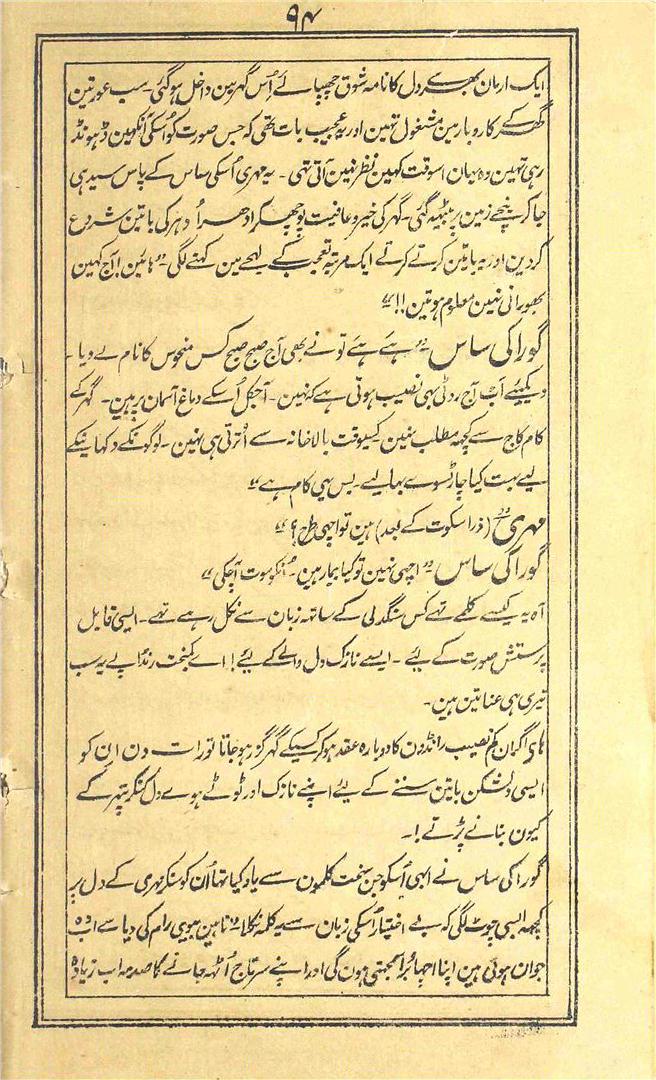 ۹۴
ایک ارمان بھرے دل کا نامہ شوق چھپائے اُس گھر مین داخل ہو گئی۔ سب عورتین
گھر کے کاروبار مین مشغول تہین اور یہ عجیب بات تھی کہ جس صورت کو اُسکی آنکہین ڈہونڈ
رہی تہین وہ یہان اسوقت کہین نظر نہین آتی تہی۔ یہ مہری اُسکی ساس کے پاس سیدہی
جا کر نیچے زمین پر بیٹھ گئی۔ گھر کی خیر و عافیت پوچھکر ادھر اُدہر کی باتین شروع
کر دین اور یہ باتین کرتے کرتے ایک مرتبہ تعجب کے لہجے مین کہنے لگی۔ "ہائین! آج کہین
بھورانی نہین معلوم ہوتین!!"
گورا کی ساس "ہے ہے تو نے بھی آج صبح صبح کس منحوس کا نام لے دیا۔
دیکہئے اب آج روٹی بہی نصیب ہوتی ہے کہ نہین۔ آجکل اُسکے دماغ آسمان پر ہین۔ گھر کے
کام کاج سے کچھ مطلب نہین کسیوقت بالاخانہ سے اُترتی ہی نہین۔ لوگونکے دکہانیکے
لیے بہت کیا چار ٹسوے بہا لیے۔ بس یہی کام ہے"
مہری "(ذرا سکوت کے بعد) ہین تو اچہی طرح؟"
گورا کی ساس "اچہی نہین تو کیا بیمار ہین۔ اُنکو موت آچکی"
آہ یہ کیسے کلمے تہے کس سنگدلی کے ساتہ زبان سے نکل رہے تہے۔ ایسی قابل
پرستش صورت کے لیئے۔ ایسے نازک دل والے کے لیئے! اے کمبخت رنڈاپے یہ سب
تیری ہی عنائتین ہین۔
ہاے اگر ان کم نصیب رانڈون کا دوبارہ عقد ہو کر کسیکے گھر گزر ہو جاتا تو رات دن ان کو
ایسی دلشکن باتین سننے کے لیئے اپنے نازک اور ٹوٹے ہوے دل کنکر پتہر کے
کیون بنانے پڑتے!۔
گورا کی ساس نے ابہی اُسکو جن سخت کلمون سے یاد کیا تہا اُن کو سنکر مہری کے دل پر
کچھ ایسی چوٹ لگی کہ بے اختیار اُسکی زبان سے یہ کلمہ نکلا۔ "نا بہین بیوی رام کی دیا سے اب وہ
جوان ہوئی ہین اپنا اچہا بُرا سمجہتی ہون گی اور اپنے سرتاج اُٹہ جانے کا صدمہ اب زیادہ